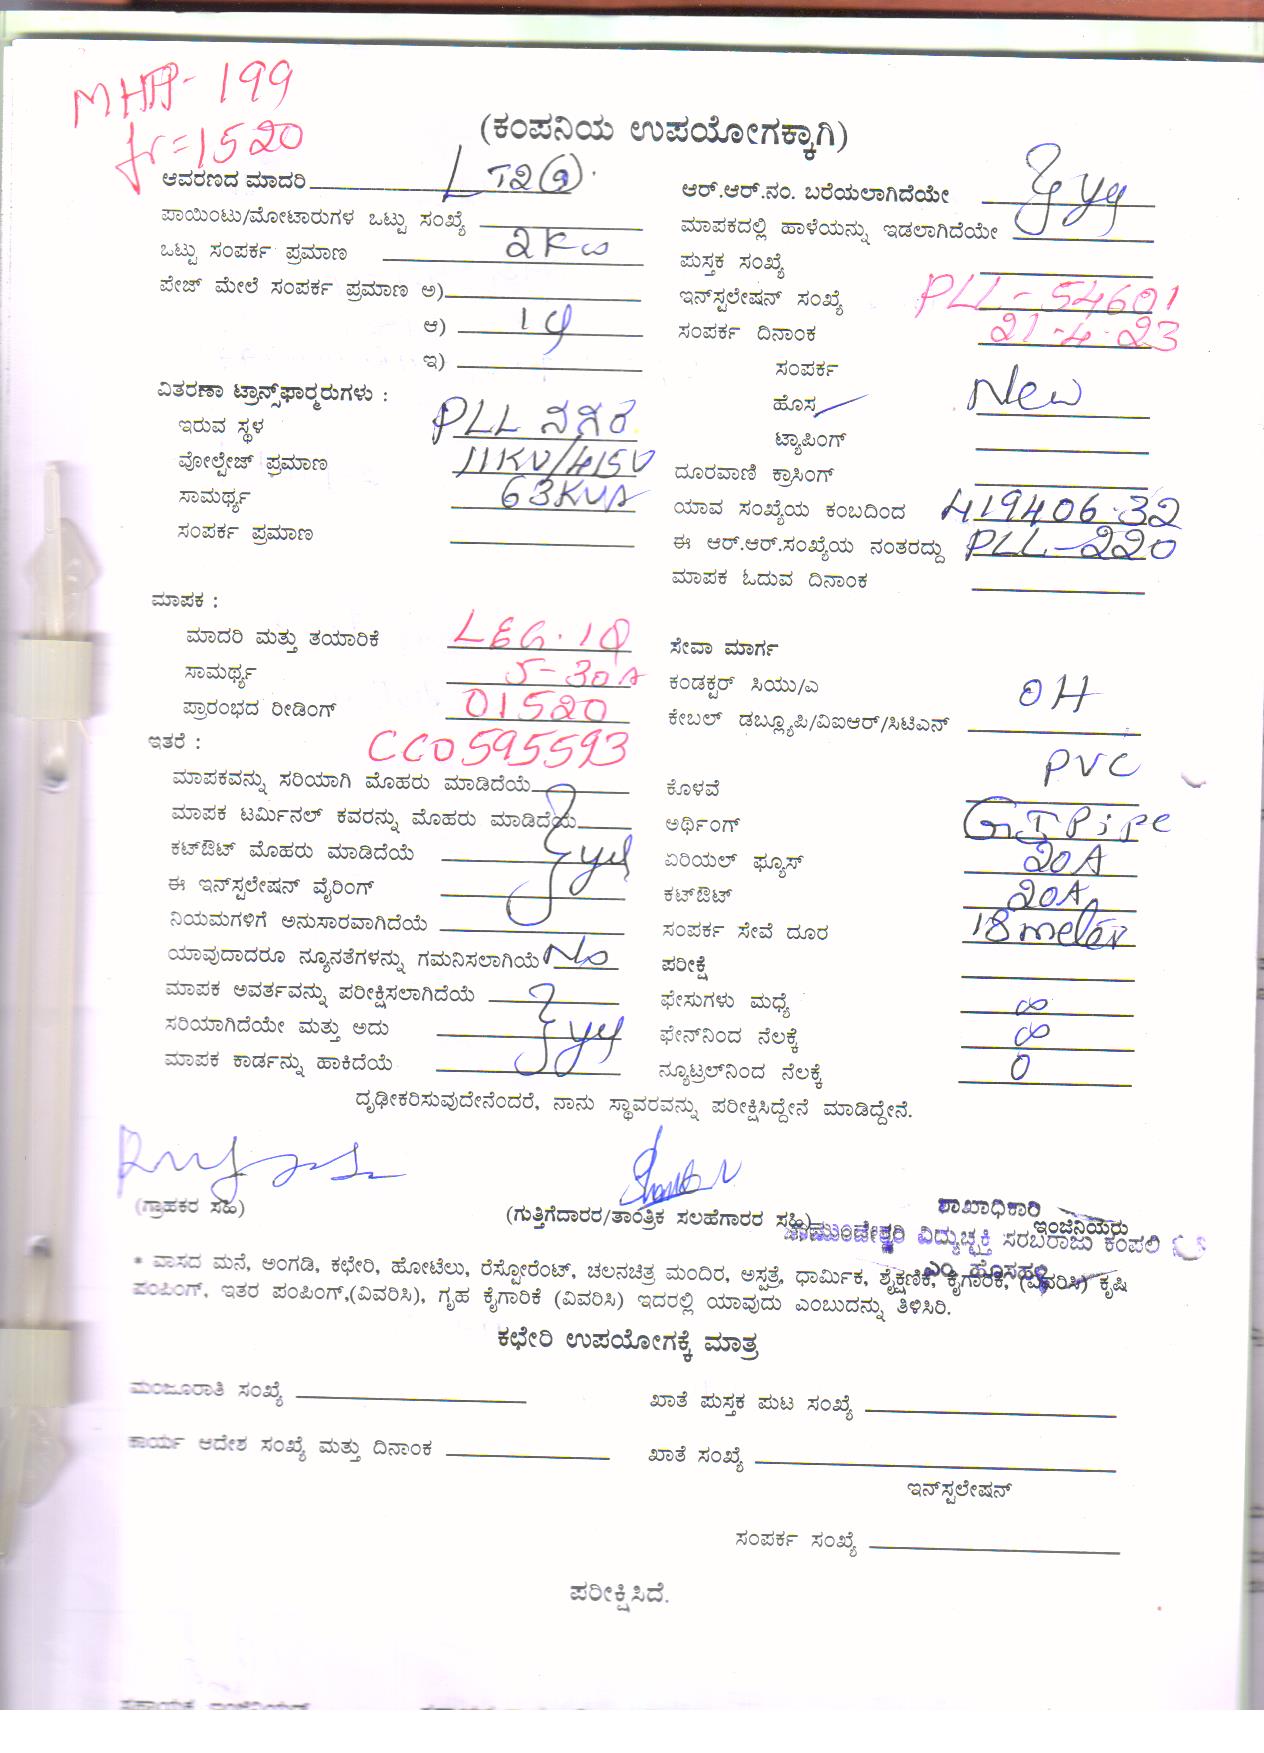 MHP-199
fr=1520
(ಕಂಪನಿಯ ಉಪಯೋಗಕ್ಕಾಗಿ)
ಆವರಣದ ಮಾದರಿ LT2(a)
ಪಾಯಿಂಟು/ಮೋಟಾರುಗಳ ಒಟ್ಟು ಸಂಖ್ಯೆ
ಒಟ್ಟು ಸಂಪರ್ಕ ಪ್ರಮಾಣ 2Kw
ಪೇಜ್ ಮೇಲೆ ಸಂಪರ್ಕ ಪ್ರಮಾಣ ಅ)
ಆ) 1φ
ಇ)
ವಿತರಣಾ ಟ್ರಾನ್ಸ್‌ಫಾರ್‍ಮರುಗಳು :
ಇರುವ ಸ್ಥಳ PLL ನಗರ
ವೋಲ್ಟೇಜ್ ಪ್ರಮಾಣ 11KV/415V
ಸಾಮರ್ಥ್ಯ 63KVA
ಸಂಪರ್ಕ ಪ್ರಮಾಣ
ಆರ್.ಆರ್.ನಂ. ಬರೆಯಲಾಗಿದೆಯೇ
ಮಾಪಕದಲ್ಲಿ ಹಾಳೆಯನ್ನು ಇಡಲಾಗಿದೆಯೇ
ಪುಸ್ತಕ ಸಂಖ್ಯೆ
ಇನ್‌ಸ್ಟಲೇಷನ್ ಸಂಖ್ಯೆ PLL-54601
ಸಂಪರ್ಕ ದಿನಾಂಕ 21-4-23
ಸಂಪರ್ಕ
ಹೊಸ New
ಟ್ಯಾಪಿಂಗ್
ದೂರವಾಣಿ ಕ್ರಾಸಿಂಗ್
ಯಾವ ಸಂಖ್ಯೆಯ ಕಂಬದಿಂದ 419406.32
ಈ ಆರ್.ಆರ್.ಸಂಖ್ಯೆಯ ನಂತರದ್ದು PLL-220
ಮಾಪಕ ಓದುವ ದಿನಾಂಕ
ಮಾಪಕ :
ಮಾದರಿ ಮತ್ತು ತಯಾರಿಕೆ L&G.1φ
ಸಾಮರ್ಥ್ಯ 5-30A
ಪ್ರಾರಂಭದ ರೀಡಿಂಗ್ 01520
ಇತರೆ : CC0595593
ಮಾಪಕವನ್ನು ಸರಿಯಾಗಿ ಮೊಹರು ಮಾಡಿದೆಯೆ
ಮಾಪಕ ಟರ್ಮಿನಲ್ ಕವರನ್ನು ಮೊಹರು ಮಾಡಿದೆಯೆ
ಕಟ್‌ಔಟ್ ಮೊಹರು ಮಾಡಿದೆಯೆ
ಈ ಇನ್‌ಸ್ಟಲೇಷನ್ ವೈರಿಂಗ್
ನಿಯಮಗಳಿಗೆ ಅನುಸಾರವಾಗಿದೆಯೆ
ಯಾವುದಾದರೂ ನ್ಯೂನತೆಗಳನ್ನು ಗಮನಿಸಲಾಗಿಯೆ No
ಮಾಪಕ ಅವರ್ತವನ್ನು ಪರೀಕ್ಷಿಸಲಾಗಿದೆಯೆ
ಸರಿಯಾಗಿದೆಯೇ ಮತ್ತು ಅದು
ಮಾಪಕ ಕಾರ್ಡನ್ನು ಹಾಕಿದೆಯೆ
ಸೇವಾ ಮಾರ್ಗ
ಕಂಡಕ್ಟರ್ ಸಿಯು/ಎ OH
ಕೇಬಲ್ ಡಬ್ಲ್ಯೂಪಿ/ವಿಐಆರ್/ಸಿಟಿಎನ್
ಕೊಳವೆ PVC
ಅರ್ಥಿಂಗ್ GI Pipe
ಏರಿಯಲ್ ಫ್ಯೂಸ್ 20A
ಕಟ್‌ಔಟ್ 20A
ಸಂಪರ್ಕ ಸೇವೆ ದೂರ 18 meter
ಪರೀಕ್ಷೆ
ಫೇಸುಗಳು ಮಧ್ಯೆ ∞
ಫೇಸ್‌ನಿಂದ ನೆಲಕ್ಕೆ ∞
ನ್ಯೂಟ್ರಲ್‌ನಿಂದ ನೆಲಕ್ಕೆ 0
ದೃಢೀಕರಿಸುವುದೇನೆಂದರೆ, ನಾನು ಸ್ಥಾವರವನ್ನು ಪರೀಕ್ಷಿಸಿದ್ದೇನೆ ಮಾಡಿದ್ದೇನೆ.
(ಗ್ರಾಹಕರ ಸಹಿ)
(ಗುತ್ತಿಗೆದಾರರ/ತಾಂತ್ರಿಕ ಸಲಹೆಗಾರರ ಸಹಿ)
ಶಾಖಾಧಿಕಾರಿ
ಇಂಜಿನಿಯರು
ಚಾಮುಂಡೇಶ್ವರಿ ವಿದ್ಯುಚ್ಛಕ್ತಿ ಸರಬರಾಜು ಕಂಪಲಿ
ಎಂ. ಹೊಸಹಳ್ಳಿ
* ವಾಸದ ಮನೆ, ಅಂಗಡಿ, ಕಛೇರಿ, ಹೋಟೆಲು, ರೆಸ್ಟೋರೆಂಟ್, ಚಲನಚಿತ್ರ ಮಂದಿರ, ಅಸ್ಪತ್ರೆ, ಧಾರ್ಮಿಕ, ಶೈಕ್ಷಣಿಕ, ಕೈಗಾರಿಕೆ, (ವಿವರಿಸಿ) ಕೃಷಿ
ಪಂಪಿಂಗ್, ಇತರ ಪಂಪಿಂಗ್,(ವಿವರಿಸಿ), ಗೃಹ ಕೈಗಾರಿಕೆ (ವಿವರಿಸಿ) ಇದರಲ್ಲಿ ಯಾವುದು ಎಂಬುದನ್ನು ತಿಳಿಸಿರಿ.
ಕಛೇರಿ ಉಪಯೋಗಕ್ಕೆ ಮಾತ್ರ
ಮಂಜೂರಾತಿ ಸಂಖ್ಯೆ
ಖಾತೆ ಪುಸ್ತಕ ಪುಟ ಸಂಖ್ಯೆ
ಕಾರ್ಯ ಆದೇಶ ಸಂಖ್ಯೆ ಮತ್ತು ದಿನಾಂಕ
ಖಾತೆ ಸಂಖ್ಯೆ
ಇನ್‌ಸ್ಟಲೇಷನ್
ಸಂಪರ್ಕ ಸಂಖ್ಯೆ
ಪರೀಕ್ಷಿಸಿದೆ.